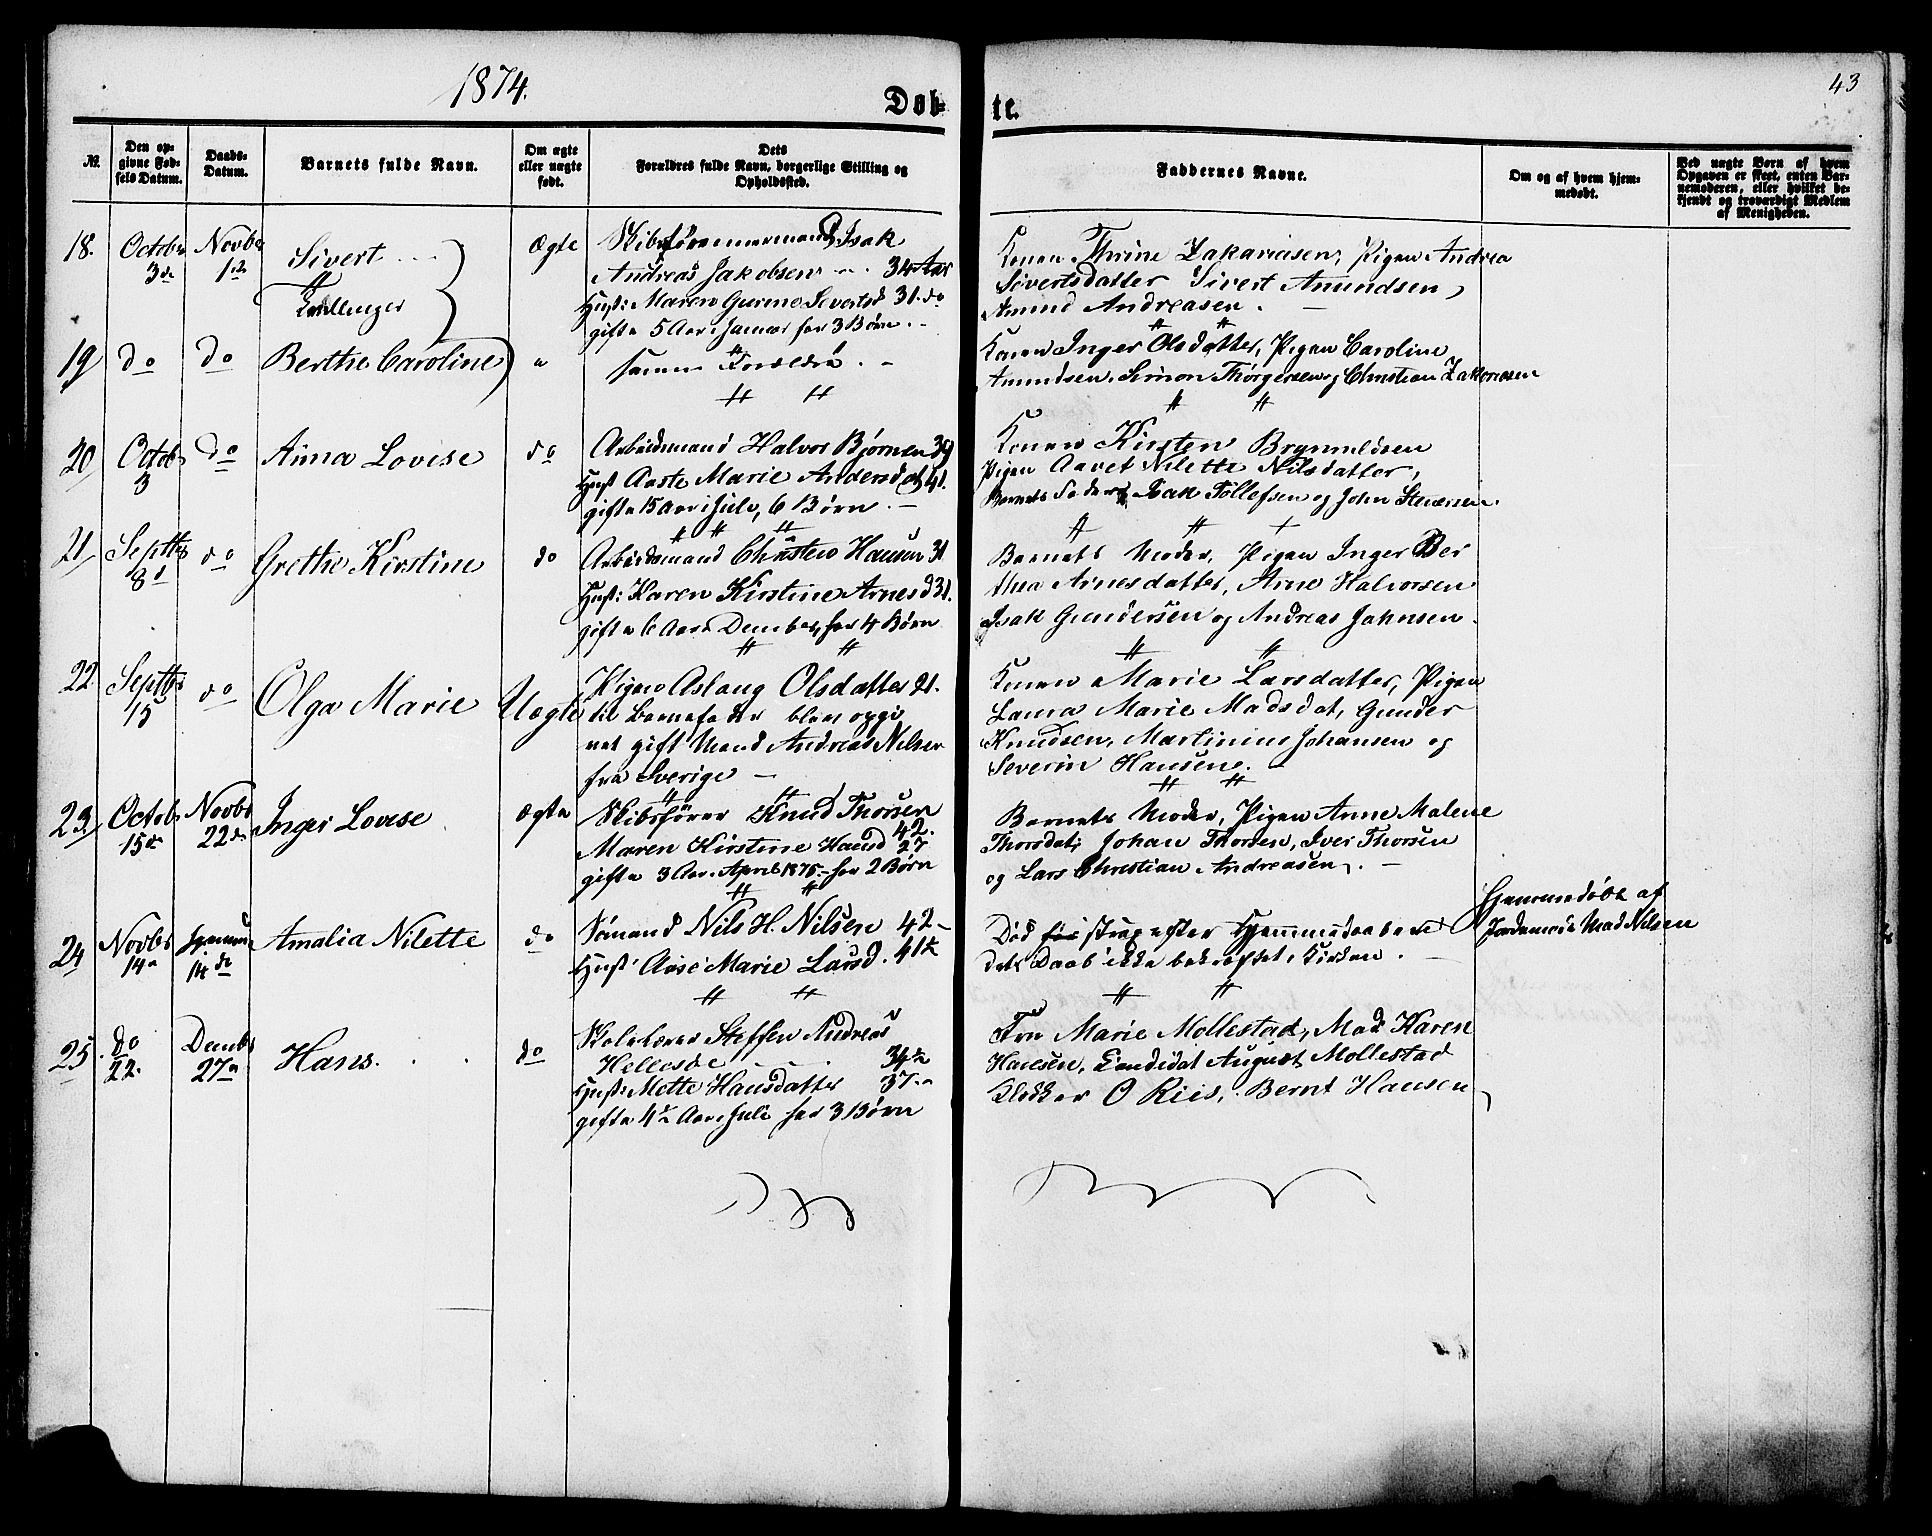 1874.
43
Døb-
te.
№
Den op-
givne Fød-
sels Datum.
Daabs-
Datum.
Barnets fulde Navn.
Om ægte
eller uægte
født.
Dets
Forældres fulde Navn, borgerlige Stilling og
Opholdssted.
Faddernes Navne.
Om og af hvem hjem-
medøbt.
Ved uægte Børn af hvem
Opgaven er skeet, enten Bar-
nemoderen, eller hvilket be-
kjendt og troværdigt Medlem
af Menigheden.
18.
Octobr
3de
Novbr
1ste
Sivert
Tvillinger
Ægte
Isak
Andreas Jakobsen 34 Aar
Hust: Maren Gurine Sivertsd 31. do
gift 5 Aar i Januar har 3 Børn.
Konen Thrine Zakariasen, Pigen Andrea
Sivertsdatter Sivert Amundsen,
Amund Andreasen.
19
do
do
Berthe Caroline
"
samme Forældre.
Konen Inger Olsdatter, Pigen Caroline
Amundsen, Simon Thorgersen og Christian Zakariasen
20
Octobr
3
do
Anna Lovise
do
Arbeidsmand Halvor Bjørnsen 39
Hust Aaste Marie Andersdat 41.
gifte 15 Aar i Juli, 6 Børn.
Konen Kirsten Brynnildsen
Pigen Aaret Nilette Nilsdatter,
Barnets Fader, Isak Tollefsen og John Stenersen.
21
Septbr
8de
do
Grethe Kirstine
do
Arbeidsmand Christen Hansen 31
Hust: Karen Kirstine Arnesd 31.
gifte 6 Aar i Dember, har 4 Børn
Barnets Moder, Pigen Inger Ber
thea Arnesdatter, Arne Halvorsen
Isak Gundersen og Andreas Jahnsen.
22.
Septbr
15
do
Olga Marie
Uægte
Pigen Aslaug Olsdatter 21.
til Barnefader blev opgi
vet gift Mand Andreas Nilsen
fra Sverige
Konen Marie Larsdatter, Pigen
Laura Marie Madsdat, Gunder
Knudsen, Martinius Johansen og
Severin Hansen.
23
Octobr
15de
Novbr
22de
Inger Lovise
Ægte
Skibsfører Knud Thorsen
42.
Maren Kirstine Hansd 27
gifte 3 Aar i April 1875 har 2 Børn
Barnets Moder, Pigen Anne Malene
Thorsdat, Johan Thorsen, Iver Thorsen
og Lars Christian Andreasen.
24
Novbr
14
Hjemme
14de
Amalia Nilette
do
Sømand Nils H. Nilsen 42
Hust: Aase Marie Larsd. 41½
Død strax efter Hjemmedaaben
dets Daab ikke bekræftet i Kirken.
Hjemmedøbt af
Jordemoder Mad Nilsen
25.
do
22.
Dembr
27de
Hans.
do
Skolelærer Steffen Andreas
34½
Hust: Mette Hansdatter 37.
gifte 4½ Aar i Juli har 3 Børn
Fru Marie Mollestad, Mad Karen
Hansen, Candidat August Mollestad
Klokker O Riis, Bernt Hansen